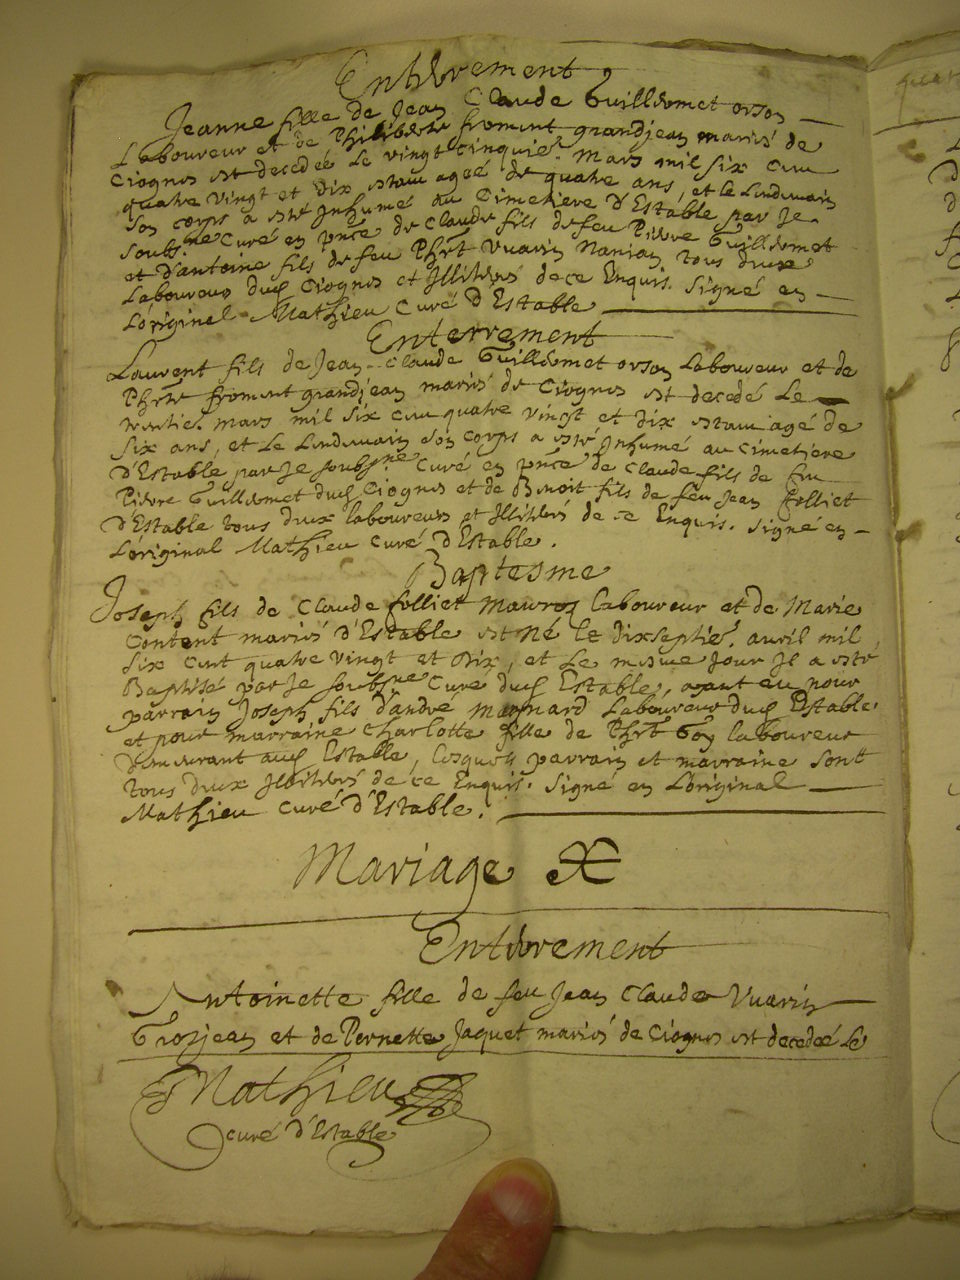 Enterrement
Jeanne fille de Jean Claude Guillermet orson
Laboureur et de Philiberte froment grandjean mariés de
Ciognes est decedée Le vingt cinquie. Mars mil six cens
quatre vingt et dix estant ageé de quatre ans, et le Lendemain
son corps a esté Inhumé au Cimetiere d'Estable par Je
soubs.ne Curé en pnce de Claude fils de feu Pierre Guillermet
et d'antoine fils de feu Phert Vuarin Nanion tous deux
Laboureurs dud Ciognes et Illiterés de ce Enquis. Signé en
Loriginel Mathieu Curé d'Estable
Enterrement
Laurent fils de Jean Claude Guillermet orson Laboureur et de
Phrte froment grandjean mariés de Ciognes est decedé Le
trentie. mars mil six cens quatre vingt et dix estant agé de
six ans, et Le Lendemain son corps a esté Inhumé au Cimetiere
d'Estable par Je soubsne. Curé en pnce de Claude fils de feu
Pierre Guillermet dud Ciognes et de Benoit fils de feu Jean folliet
d'Estable tous deux laboureurs et Illiterés de ce Enquis. Signé en
Loriginal Mathieu Curé d'Estable.
Baptesme
Joseph fils de Claude folliet laboureur et de Marie
Content mariés d'Estable est né le dixseptie. avril mil
six cent quatre vingt et dix, et Le mesme Jour Il a esté
Baptisé par Je soubsne Curé dud Estable, ayant eu pour
parrain Joseph fils d'andré Laboureur dud Estable.
et pour marraine Charlotte fille de Phrt Goy laboureur
demeurant aud Estable, Lesquels parrain et marraine sont
tous deux Illiterés de ce Enquis. Signé en Loriginal
Mathieu Curé d'Estable.
Mariage X
Enterrement
Antoinette fille de feu Jean Claude Vuarin
Grosjean et de Pernette Jaquet mariés de Ciognes est decedeé Le
Mathieu
curé d'Estable